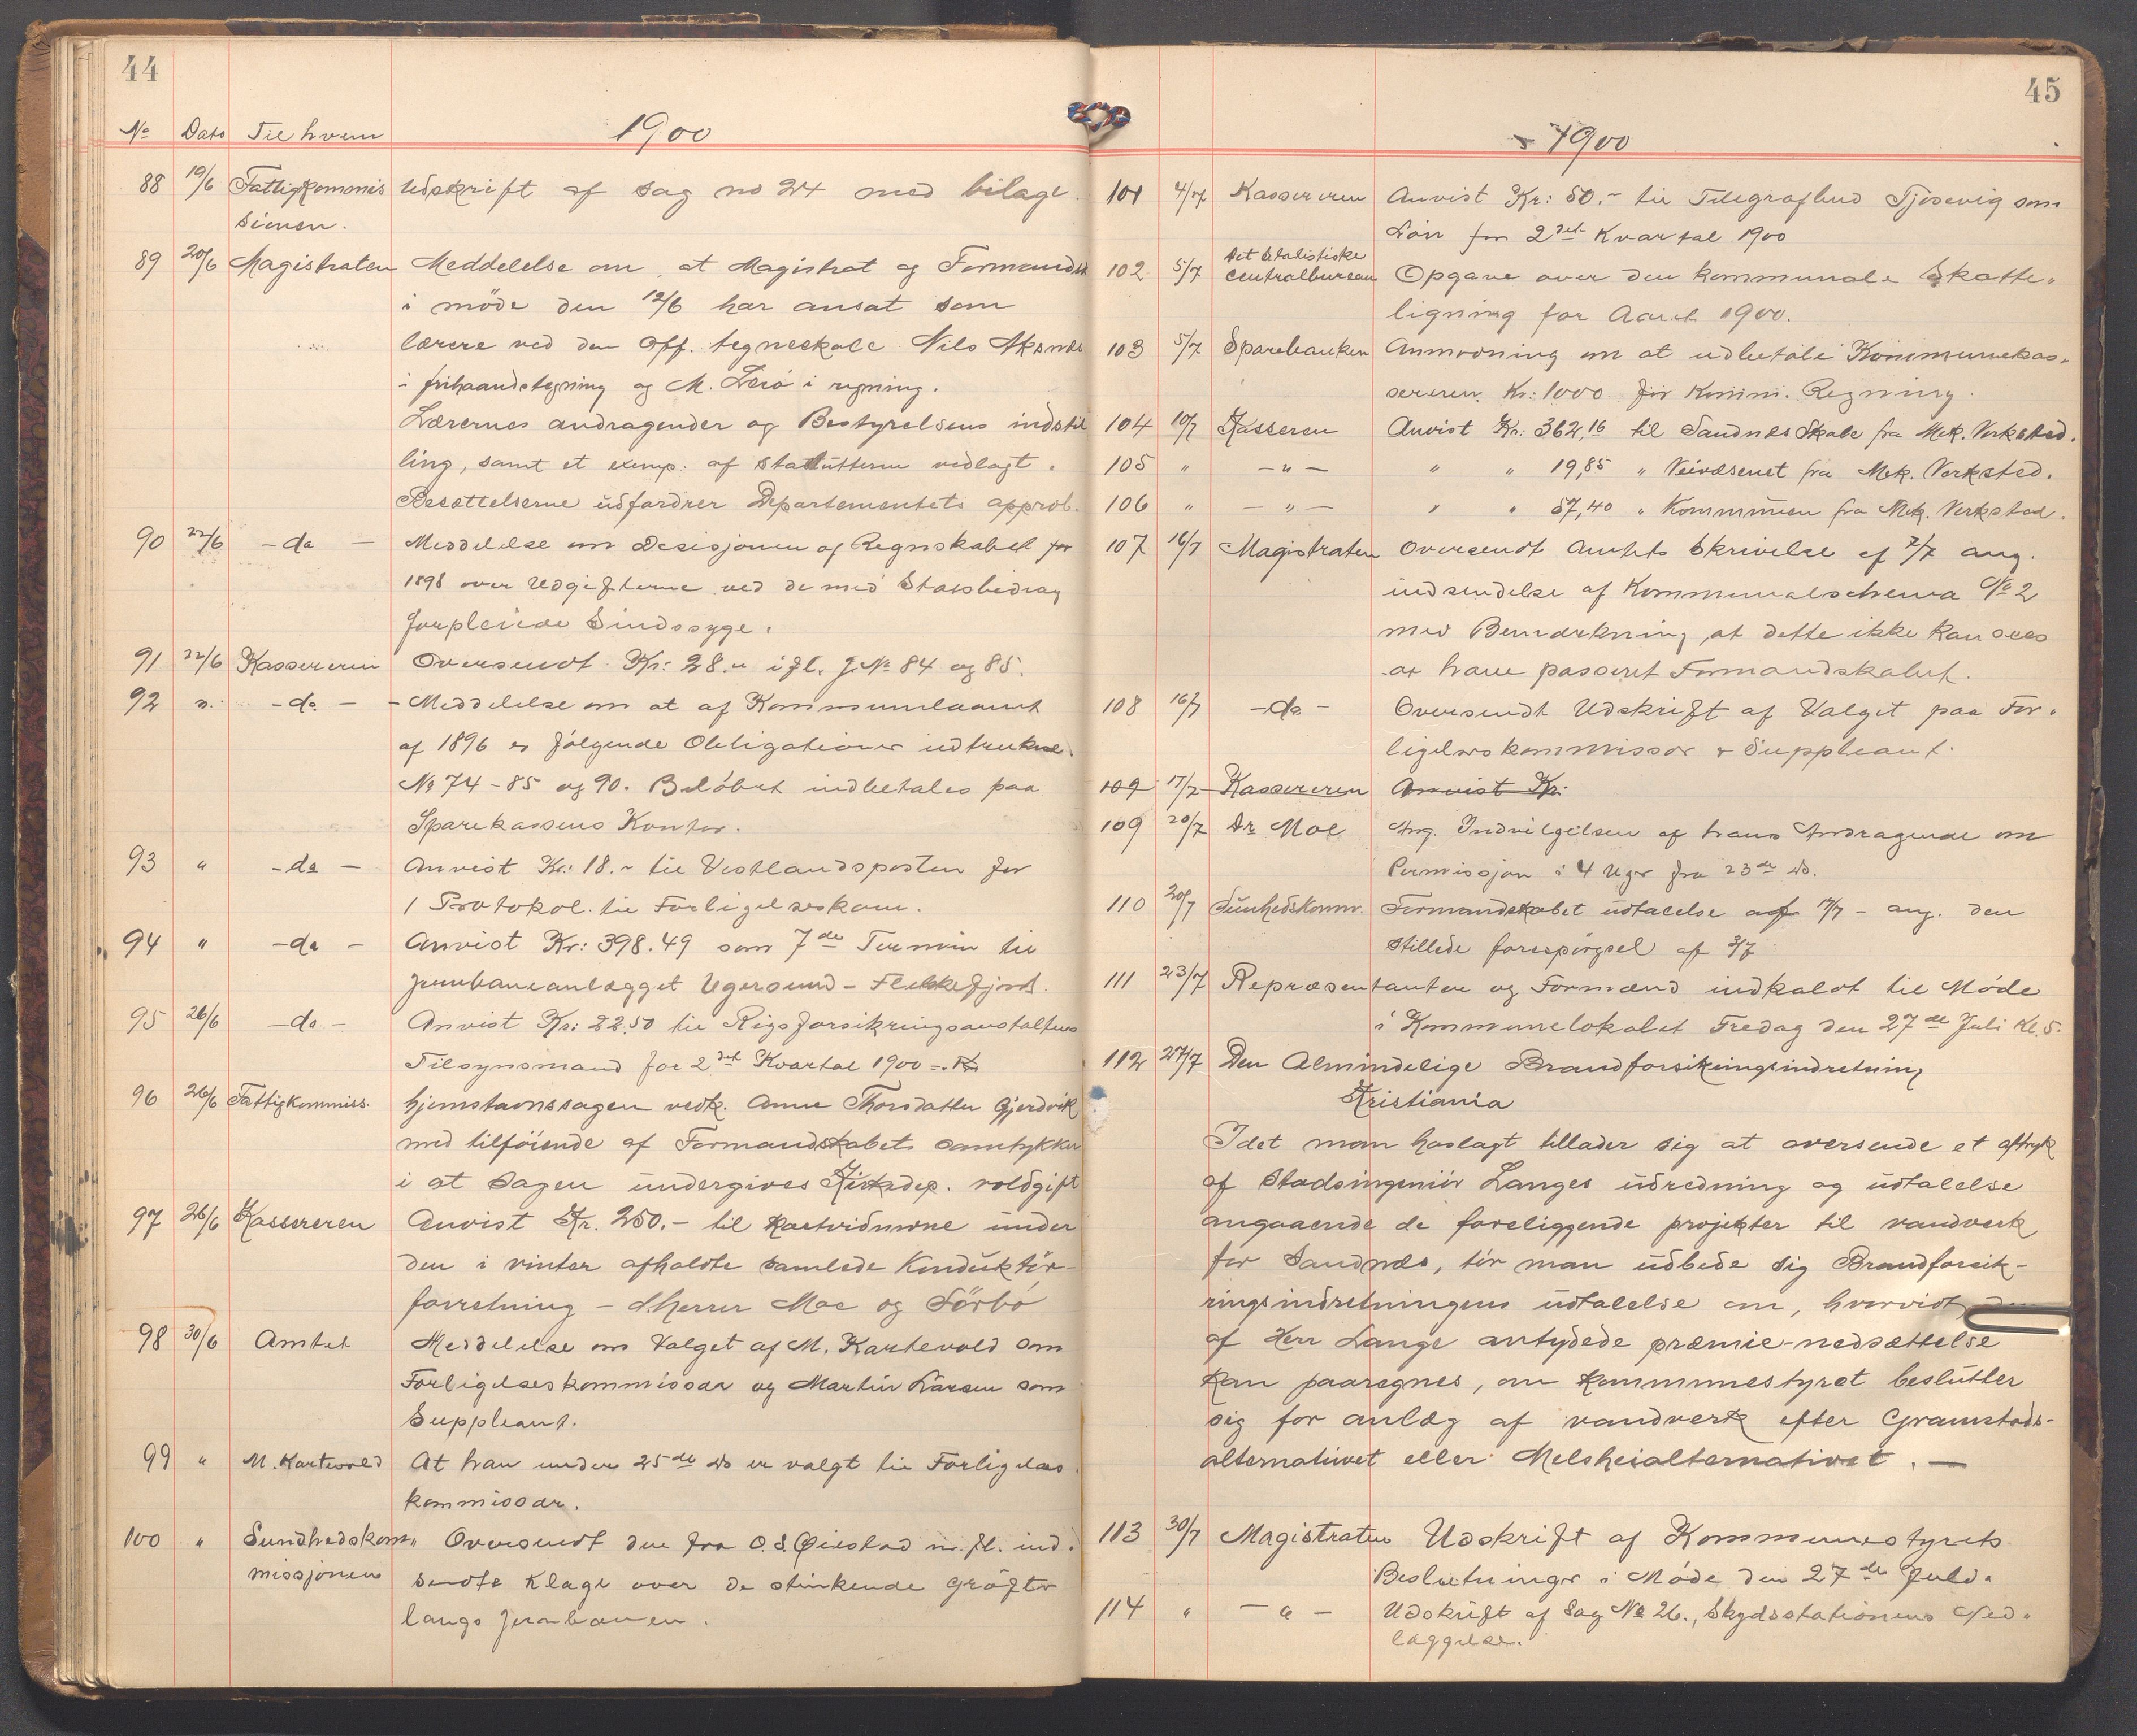 44
No Dato Til hvem 1900
88 19/6 Fattigkommis Udskrift af sag no 24 med bilage.
sionen.
89 20/6 Magistraten Meddelelse om, at Magistrat og Formandsk
i möde den 12/6 har ansat som
lærere ved den off. tegneskole Nils Aksnes
i frihaandstegning og M. Lerö i regning.
Lærernes andragender og Bestyrelsens indstil
ling, samt et exemp. af statutterne vedlagt.
Besættelserne udfordrer Departementets approb.
90 22/6 - do - Meddelelse om Desisjonen af Regnskabet for
1898 over Udgifterne ved de med Statsbidrag
forpleiede Sindssyge.
91 22/6 Kassereren Oversendt Kr: 28.- ifl. J.No 84 og 85.
92 " - do - - Meddelelse om at af Kommunelaanet
af 1896 er følgende Obligationer udtrukne.
No 74-85 og 90. Beløbet indbetales paa
Sparekassens Kontor.
93 " - do - Anvist Kr: 18.- til Vestlandsposten for
1 Protokol til Forligelseskom.
94 " - do - Anvist Kr: 398.49 som 7de Termin til
Jernbaneanlægget Egersund - Flekkefjord.
95 26/6 - do - Anvist Kr: 22.50 til Rigsforsikringsanstaltens
Tilsynsmand for 2det Kvartal 1900 -.
96 26/6 Fattigkommiss. hjemstavnssagen vedk. Anne Thorsdatter Gjerdvik
med tilföiende af Formandskabets samtykke
i at sagen undergives Kirkedep. voldgift
97 26/6 Kassereren Anvist Kr. 250.- til kartvidnerne under
den i vinter afholdte samlede Konduktör-
forretning - d'herrer Moe og Sörbö
98 30/6 Amtet Meddelelse om Valget af M. Kartevold som
Forligelseskommissær og Martin Larsen som
Suppleant.
99 " M. Kartevold At han under 25de ds er valgt til Forligelses
kommissær.
100 " Sundhedskom- Oversendt den fra O. S. Øiestad m. fl. ind-
missjonen sendte Klage over de stinkende grøfter
langs Jernbanen.
45
1900
101 4/7 Kassereren Anvist Kr: 50.- til Telegrafbud Tjosevig som
Løn for 2det Kvartal 1900
102 5/7 Det statistiske
centralbureau Opgave over den kommunale Skatte-
ligning for Aaret 1900.
103 5/7 Sparebanken Anmodning om at udbetale Kommunekas-
sereren Kr: 1000 for Komm. Regning.
104 10/7 Kasseren Anvist Kr. 362,16 til Sandnes Skole fra Mek. Verksted.
105 " - " - " " 19,85 " Veivæsenet fra Mek. Verksted.
106 " - " - " " 57,40 " Kommunen fra Mek. Verksted.
107 16/7 Magistraten Oversendt Amtets Skrivelse af 7/7 ang.
indsendelse af Kommunalschema No 2
med Bemærkning, at dette ikke kan sees
at have passeret Formandskabet.
108 16/7 - do - Oversendt Udskrift af Valget paa For-
ligelseskommissær & Suppleant.
109 17/7 Kassereren Anvist Kr:
109 20/7 Dr Moe Ang. Indvilgelsen af hans Andragende om
Permissjon i 4 Uger fra 23de ds.
110 20/7 Sunhedskomm. Formandskabet udtalelse af 17/7 - ang. den
stillede forespörgsel af 3/7
111 23/7 Repræsentanter og Formænd indkaldt til Møde
i Kommunelokalet Fredag den 27de Juli Kl. 5.
112 27/7 Den Almindelige Brandforsikringsindretning
Kristiania
Idet man hoslagt tillader sig at oversende et aftryk
af Stadsingeniör Langes udredning og udtalelse
angaaende de foreliggende projekter til vandverk
for Sandnes, tör man udbede sig Brandforsik-
ringsindretningens udtalelse om, hvorvidt den
af Herr Lange antydede præmie-nedsættelse
kan paaregnes, om kommunestyret beslutter
sig for anlæg af vandverk efter Gramstads-
alternativet eller Melsheialternativet. —
113 30/7 Magistraten Udskrift af Kommunestyrets
Beslutninger i Møde den 27de Juli.
114 " - " - Udskrift af Sag No 26., Skydsstationens Ned-
læggelse.